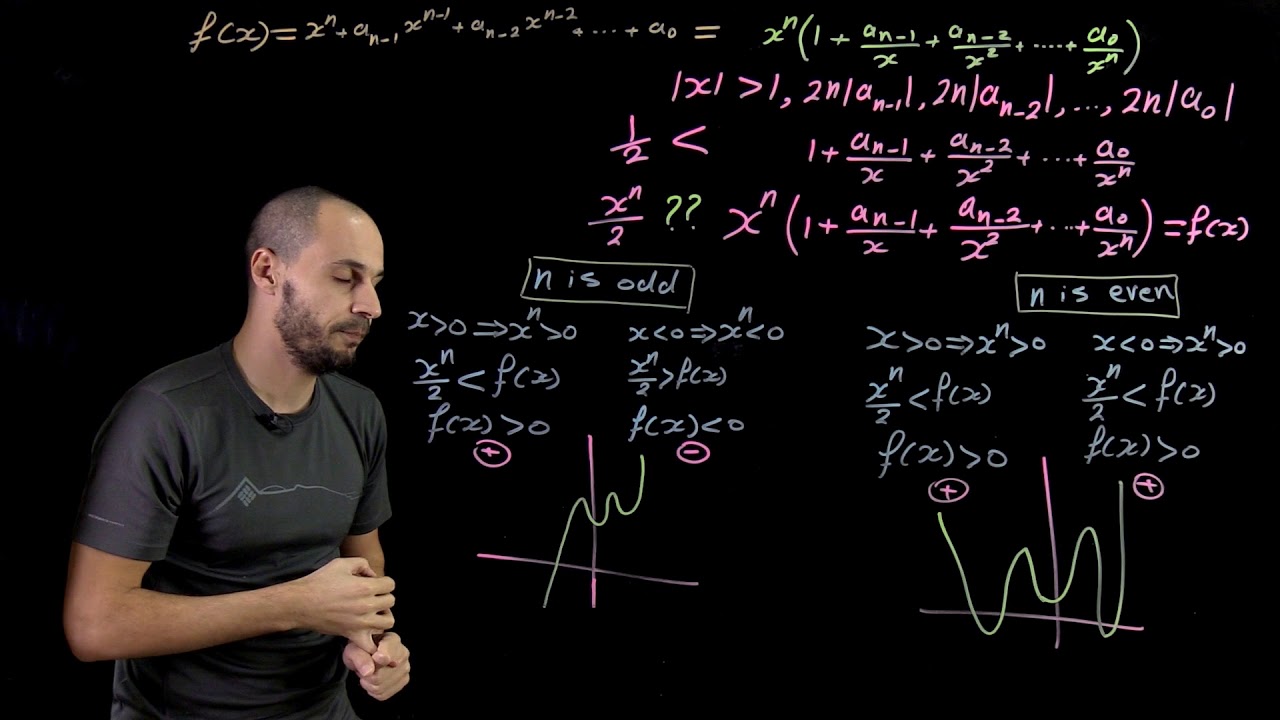 f(x) = xⁿ + aₙ₋₁xⁿ⁻¹ + aₙ₋₂xⁿ⁻² + ⋯ + a₀ = xⁿ(1 + aₙ₋₁/x + aₙ₋₂/x² + ⋯ + a₀/xⁿ)
|x| > 1, 2n|aₙ₋₁|, 2n|aₙ₋₂|, ..., 2n|a₀|
1/2 < 1 + aₙ₋₁/x + aₙ₋₂/x² + ⋯ + a₀/xⁿ
xⁿ/2 ?? xⁿ(1 + aₙ₋₁/x + aₙ₋₂/x² + ⋯ + a₀/xⁿ) = f(x)
n is odd
x>0 ⇒ xⁿ>0
xⁿ/2 < f(x)
f(x) > 0
+
x<0 ⇒ xⁿ<0
xⁿ/2 > f(x)
f(x) < 0
−
n is even
x>0 ⇒ xⁿ>0
xⁿ/2 < f(x)
f(x) > 0
+
x<0 ⇒ xⁿ>0
xⁿ/2 < f(x)
f(x) > 0
+